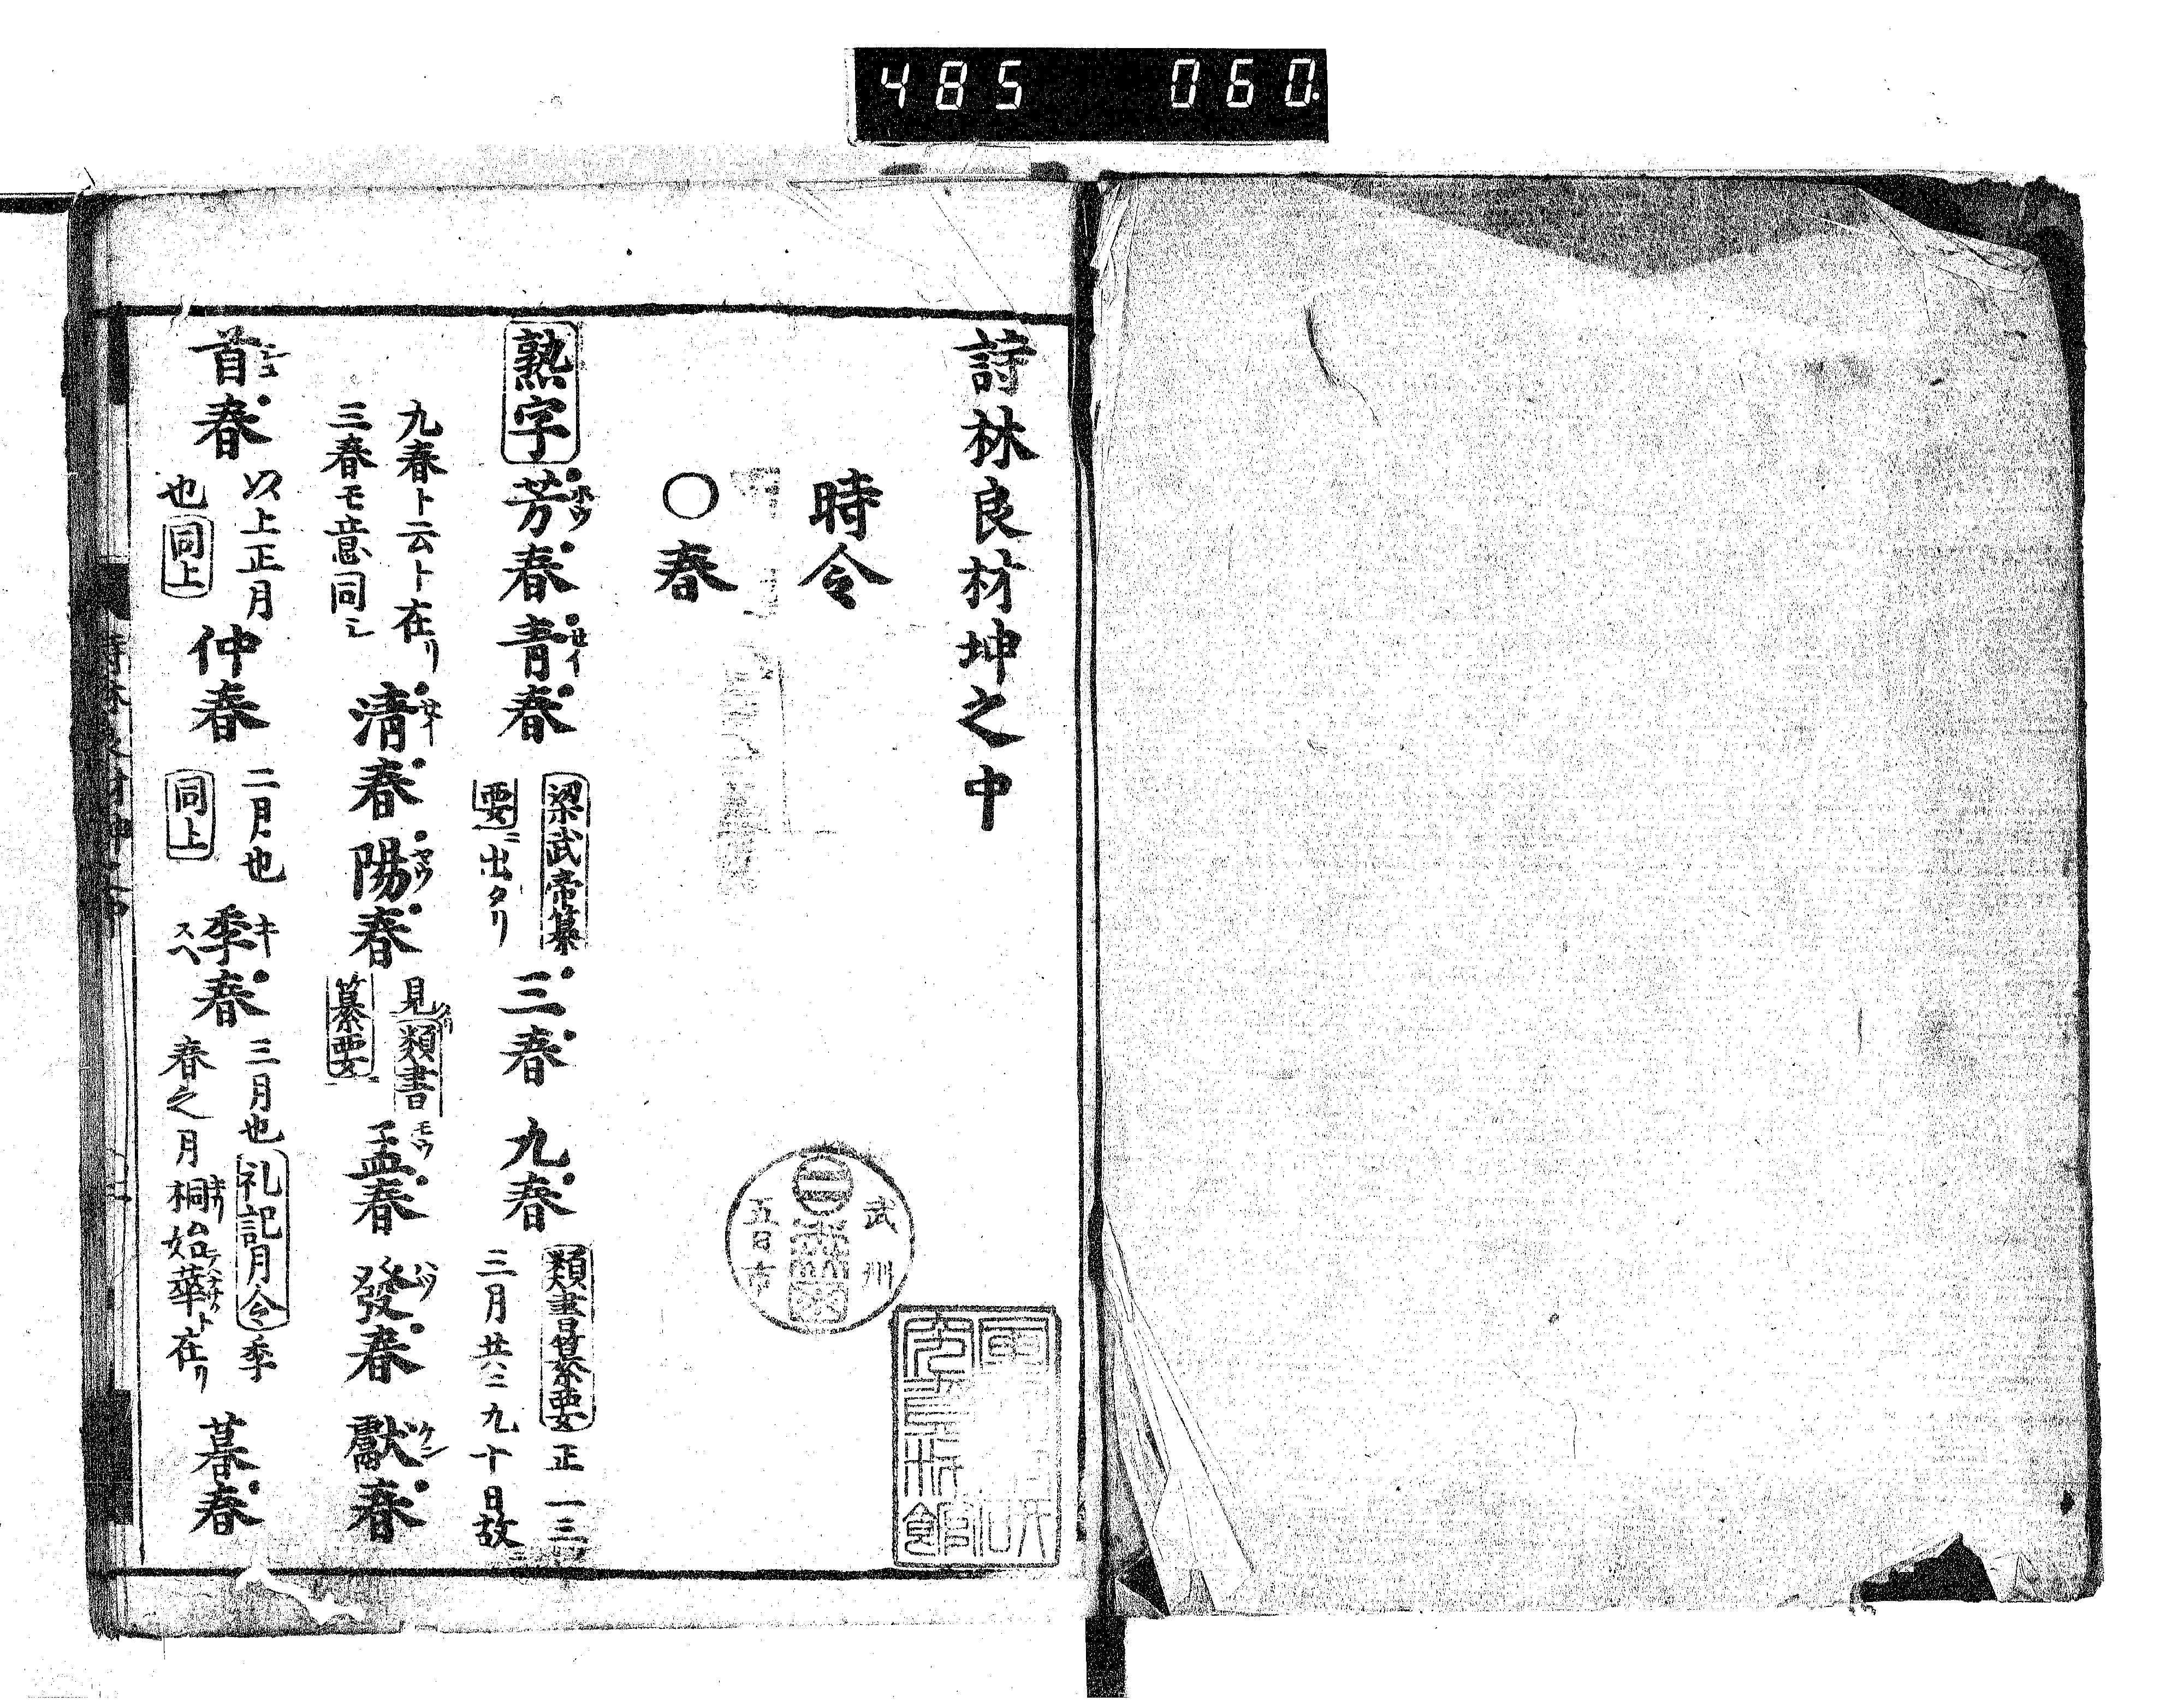 485 060.
詩林良材坤之中
時令
○春
熟字 芳春 青春 梁武帝纂要ニ出タリ 三春 九春 類書纂要 正一三三月共ニ九十日故
九春ト云ト在リ三春モ意同シ 清春 陽春 見類書纂要ニ 孟春 發春 獻春
首春 以上正月也 同上 仲春 二月也 同上 季春 三月也 礼記月令 季春之月桐始華ト在リ 暮春
武州
五日市